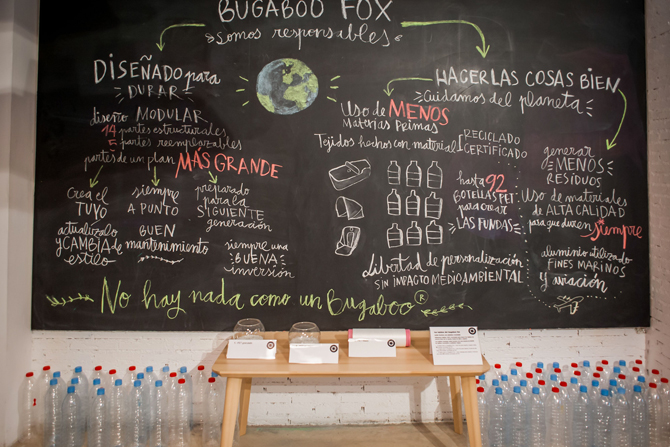 BUGABOO FOX
Somos responsables
DISEÑADO para
DURAR
diseño MODULAR
14 partes estructurales
5 partes reemplazables
partes de un plan MÁS GRANDE
Crea el
TUYO
actualízalo
y CAMBIA de
estilo
siempre
A PUNTO
BUEN
mantenimiento
preparado
para la
SIGUIENTE
generación
siempre una
BUENA
inversión
HACERLAS COSAS BIEN
Cuidamos del planeta
Uso de MENOS
Materias Primas
Tejidos hechos con material
RECICLADO
CERTIFICADO
hasta
92
BOTELLAS PET
para crear
LAS FUNDAS
Libertad de personalización
SIN IMPACTO MEDIOAMBIENTAL
generar
MENOS
RESÍDUOS
Uso de materiales
de ALTA CALIDAD
para que duren siempre
aluminio utilizado
FINES MARINOS
y aviación
No hay nada como un Bugaboo®